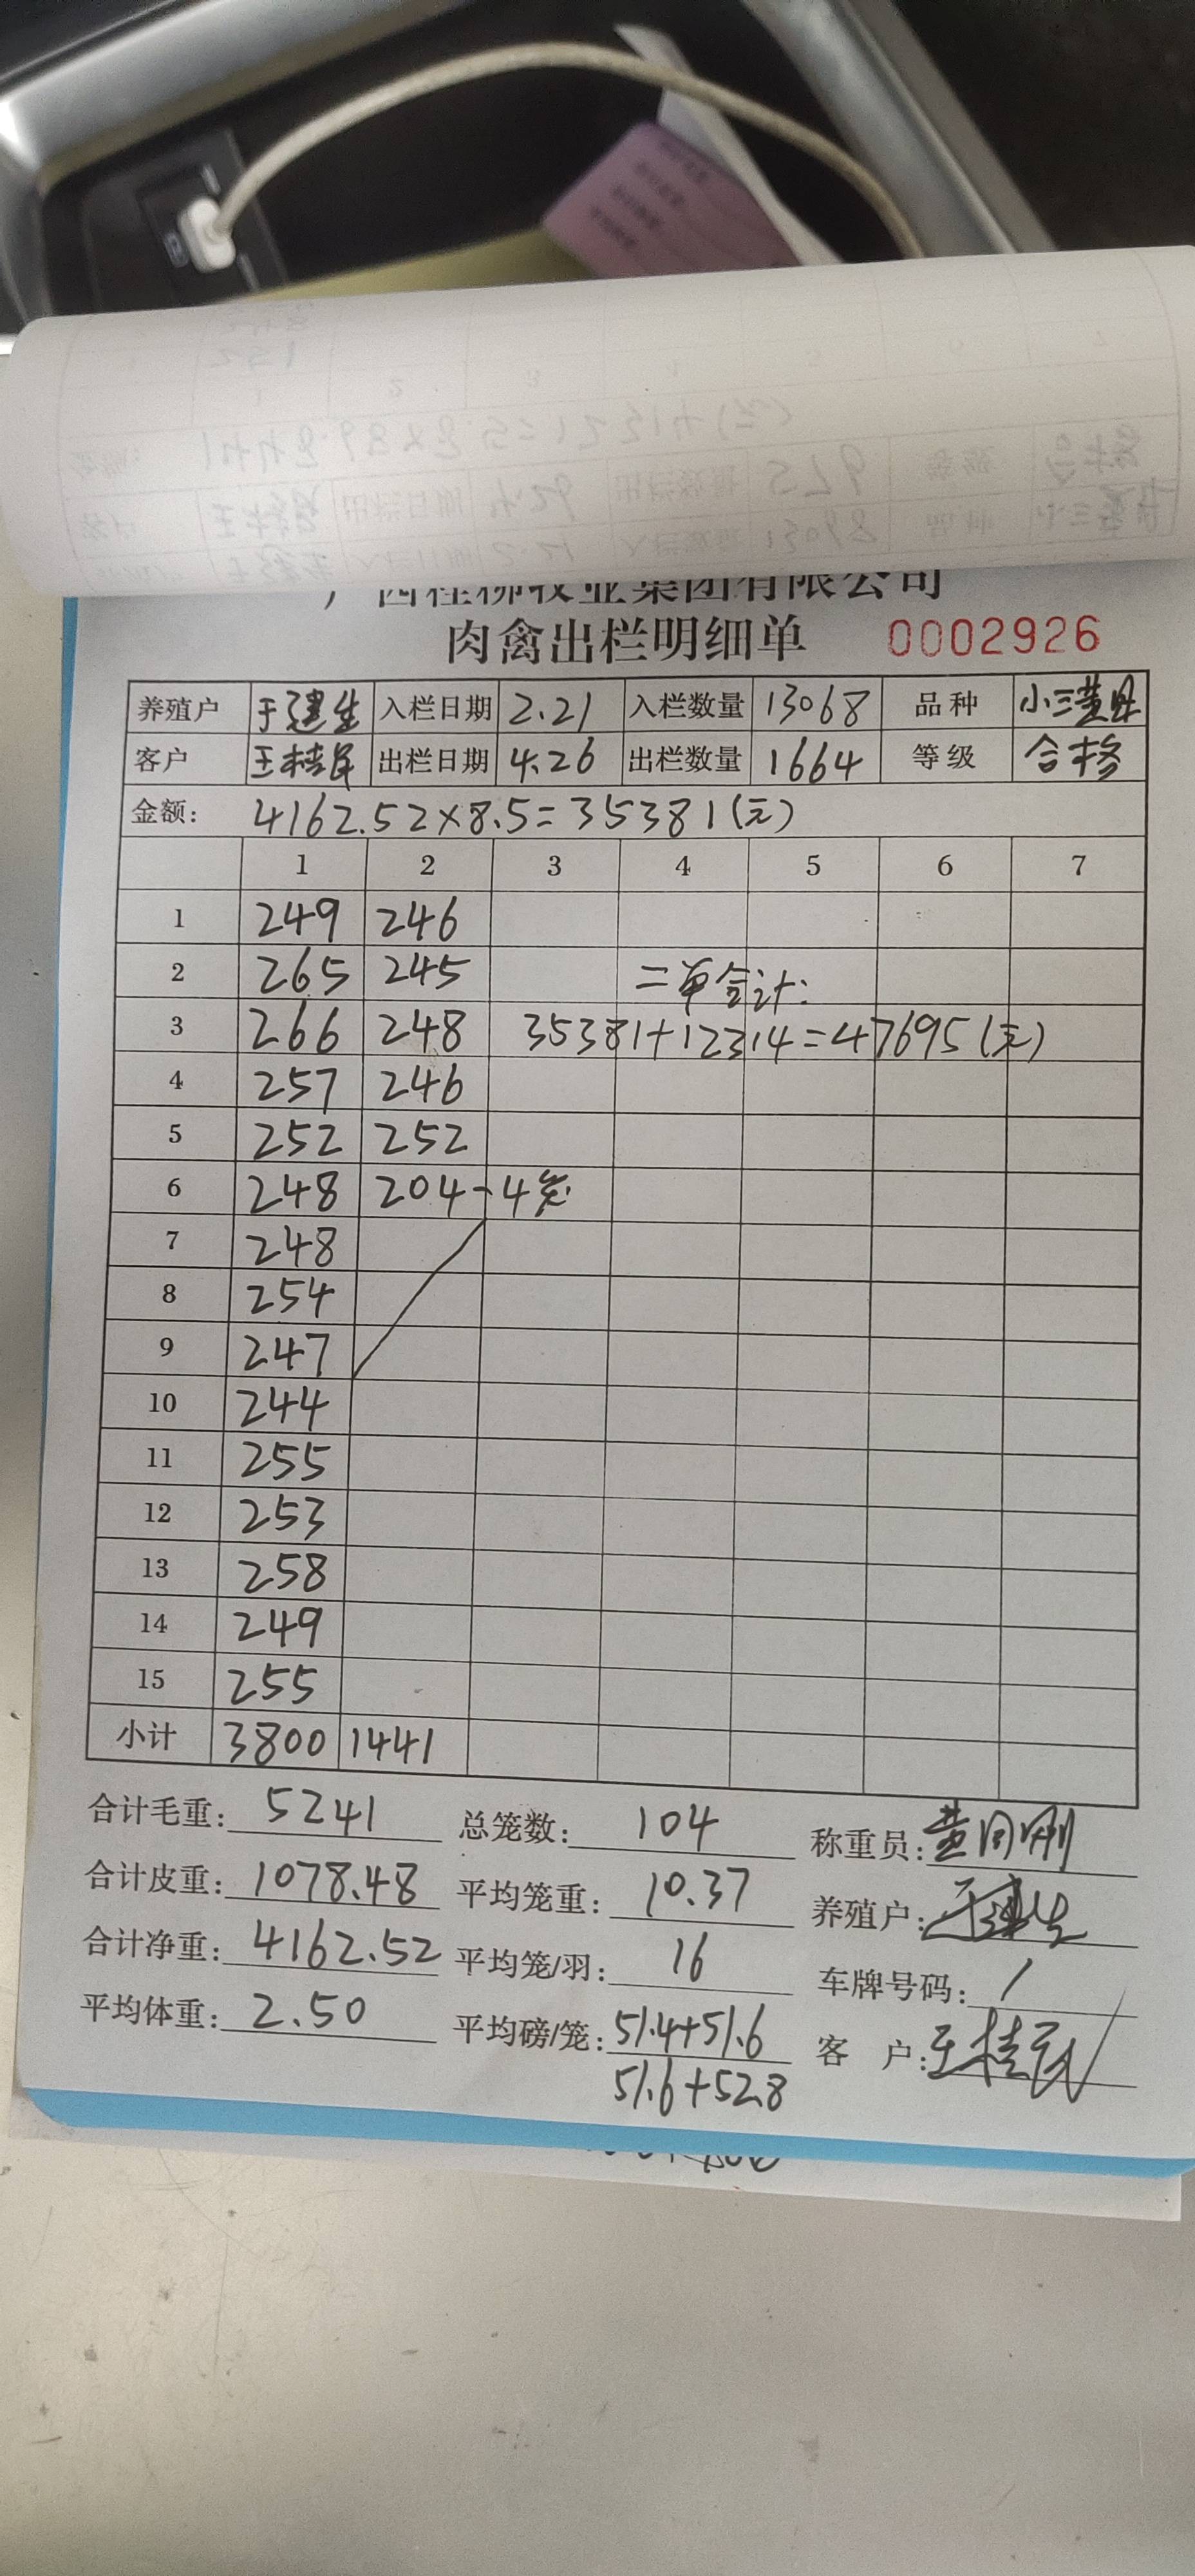 广西桂柳牧业集团有限公司
肉禽出栏明细单 0002926
养殖户 于建生 入栏日期 2.21 入栏数量 13068 品种 小三黄
客户 王桂民 出栏日期 4.26 出栏数量 1664 等级 合格
金额: 4162.52×8.5=35381(元)
1 2 3 4 5 6 7
1 249 246
2 265 245 二单合计:
3 266 248 35381+12314=47695(元)
4 257 246
5 252 252
6 248 204-4笼
7 248
8 254
9 247
10 244
11 255
12 253
13 258
14 249
15 255
小计 3800 1441
合计毛重: 5241 总笼数: 104 称重员: 黄同刚
合计皮重: 1078.48 平均笼重: 10.37 养殖户: 于建生
合计净重: 4162.52 平均笼/羽: 16 车牌号码: /
平均体重: 2.50 平均磅/笼: 51.4+51.6 客户: 王桂民
51.6+52.8